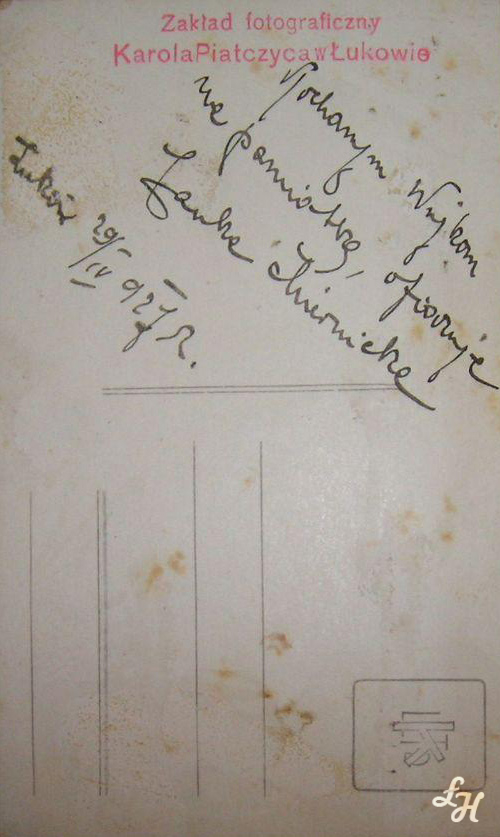 Zakład fotograficzny
Karola Piatczyca w Łukowie
Kochanym Wujkom
na pamiątkę, ofiaruje
Janka
Łuków
29/IV 927 R.
ŁH